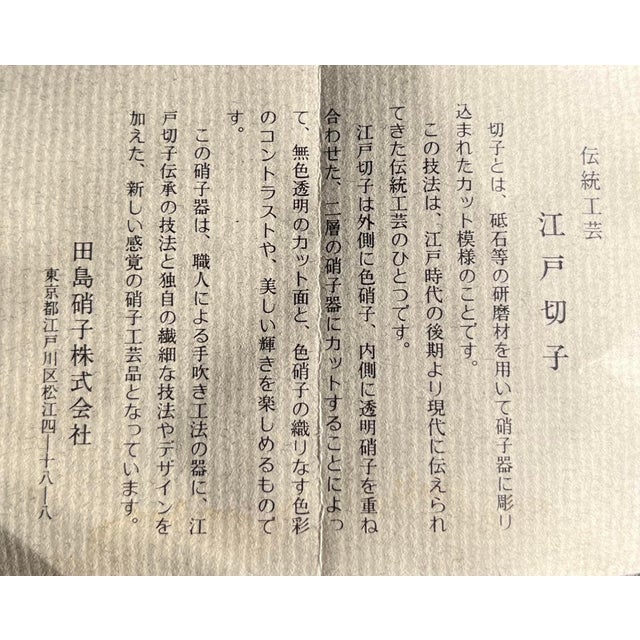 伝統工芸
江戸切子
切子とは、砥石等の研磨材を用いて硝子器に彫り
込まれたカット模様のことです。
この技法は、江戸時代の後期より現代に伝えられ
てきた伝統工芸のひとつです。
江戸切子は外側に色硝子、内側に透明硝子を重ね
合わせた、二層の硝子器にカットすることによっ
て、無色透明のカット面と、色硝子の織りなす色彩
のコントラストや、美しい輝きを楽しめるもので
す。
この硝子器は、職人による手吹き工法の器に、江
戸切子伝承の技法と独自の繊細な技法やデザインを
加えた、新しい感覚の硝子工芸品となっています。
田島硝子株式会社
東京都江戸川区松江四―十八―八